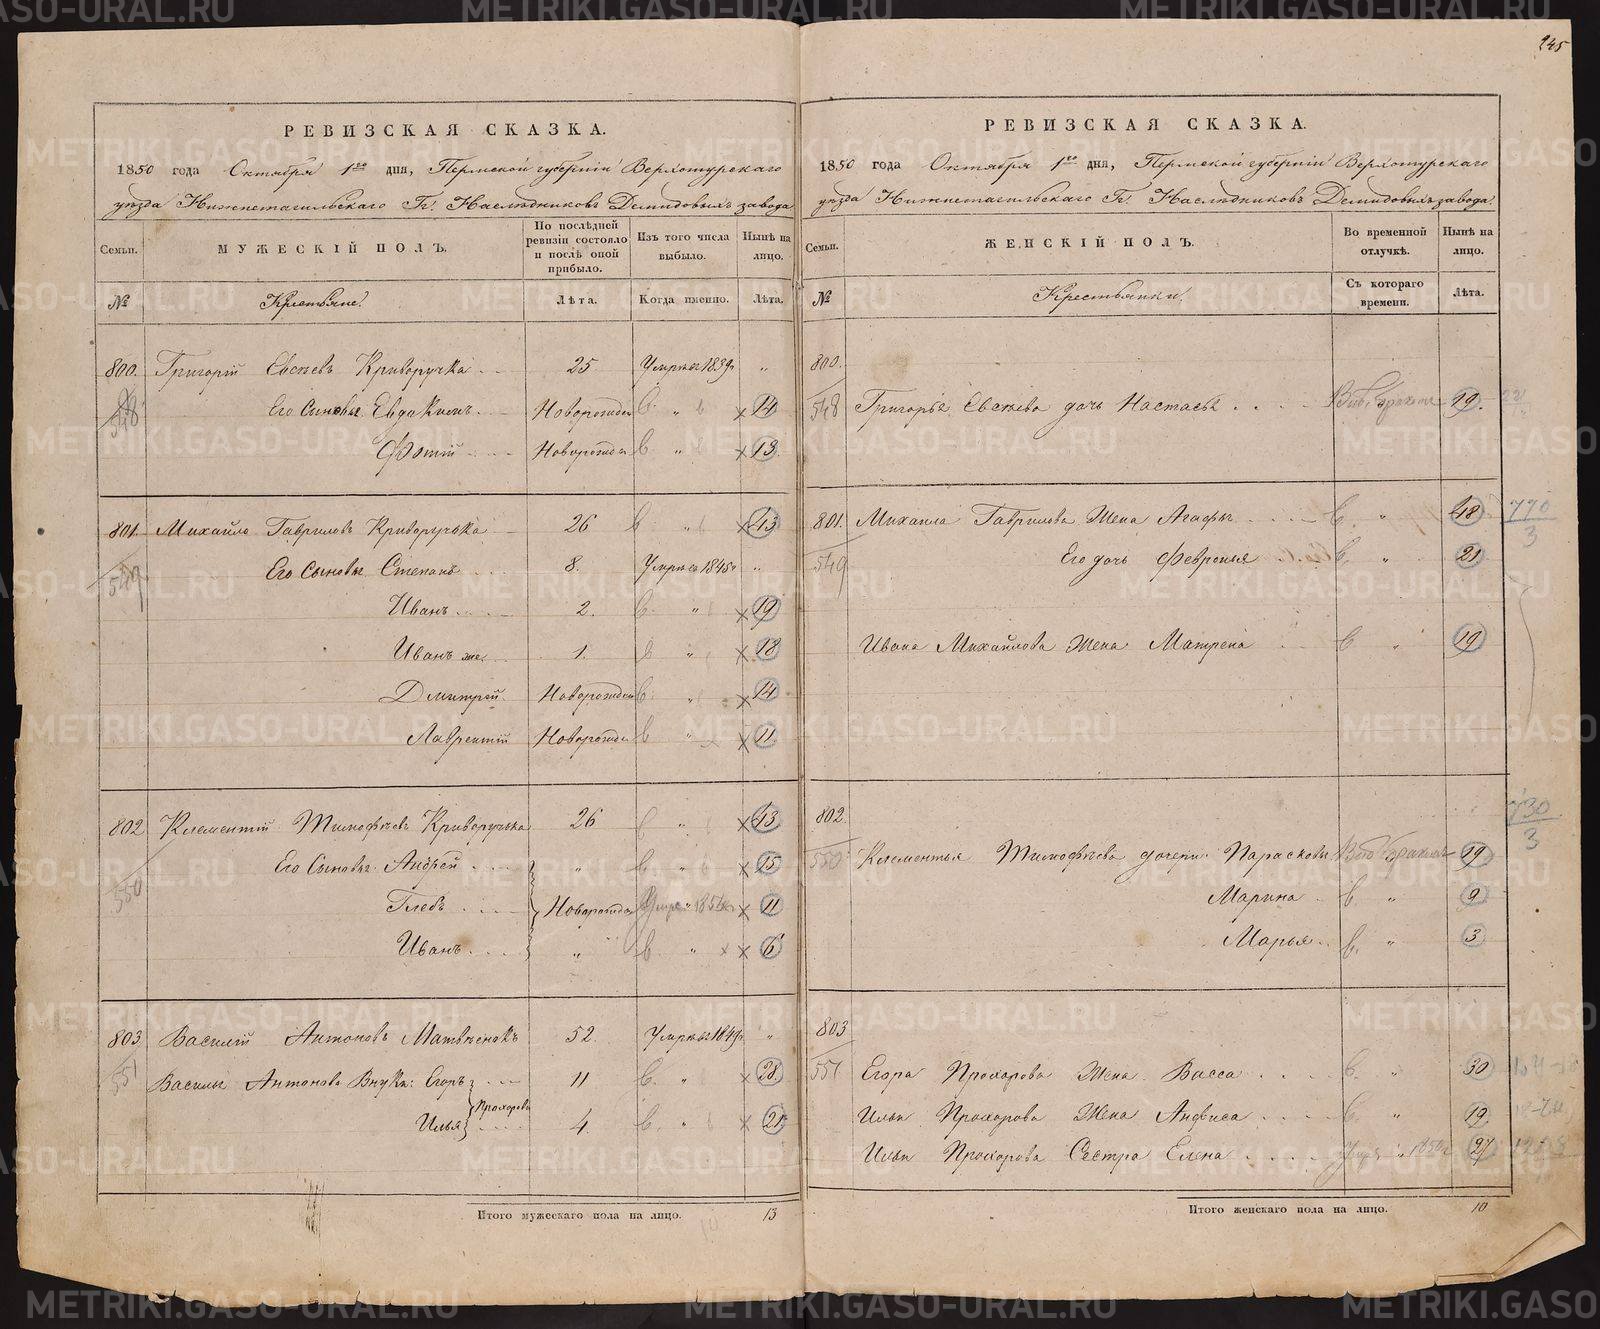 245
РЕВИЗСКАЯ СКАЗКА.
1850 года Октября 1го дня, Пермской губерніи Верхотурскаго
уѣзда Нижнетагильскаго Гг. Наслѣдниковъ Демидовыхъ завода
Семьи. МУЖЕСКІЙ ПОЛЪ. По послѣдней ревизіи состояло и послѣ оной прибыло. Изъ того числа выбыло. Нынѣ на лицо.
№ Крестьяне. Лѣта. Когда именно. Лѣта.
800. Григорій Евсѣевъ Криворучка 25 Умрше 1839 "
548 Его Сыновья Евдокимъ Новорожден " 14
Фотій Новорожден " 13
801. Михайло Гавриловъ Криворучька 26 " 43
549 Его Сыновья Степанъ 8. Умрше 1845 "
Иванъ 2. " 19
Иванъ же 1. " 18
Дмитрей Новорожден " 14
Лаврентій Новорожден " 11
802 Клементій Тимофѣевъ Криворучька 26 " 43
550 Его Сыновья Андрей " 15
Глебъ Новорожден 11
Иванъ " " 6
803. Василій Антоновъ Матвѣенокъ 52. Умрше 1849 "
551 Василья Антонова Внуки: Егоръ 11 " 28
Прохоровы
Илья 4. " 21
Итого мужескаго пола на лицо. 13
РЕВИЗСКАЯ СКАЗКА.
1850 года Октября 1го дня, Пермской губерніи Верхотурскаго
уѣзда Нижнетагильскаго Гг. Наслѣдниковъ Демидовыхъ завода.
Семьи. ЖЕНСКІЙ ПОЛЪ. Во временной отлучкѣ. Нынѣ на лицо.
№ Крестьянки. Съ котораго времени. Лѣта.
800.
548 Григорья Евсѣева дочь Настасья 19.
801. Михаила Гаврилова Жена Агафья " 48 770
3
549 Его дочь Февронья " 21
Ивана Михайлова Жена Матрена " 19
802. 730
3
550 Клементья Тимофѣева дочери: Парасковья 19
Марина " 9
Марья " 3
803
551 Егора Прохорова Жена Васса " 30
Ильи Прохорова Жена Анфиса " 19
Ильи Прохорова Сестра Елена 27
Итого женскаго пола на лицо. 10
METRIKI.GASO-URAL.RU